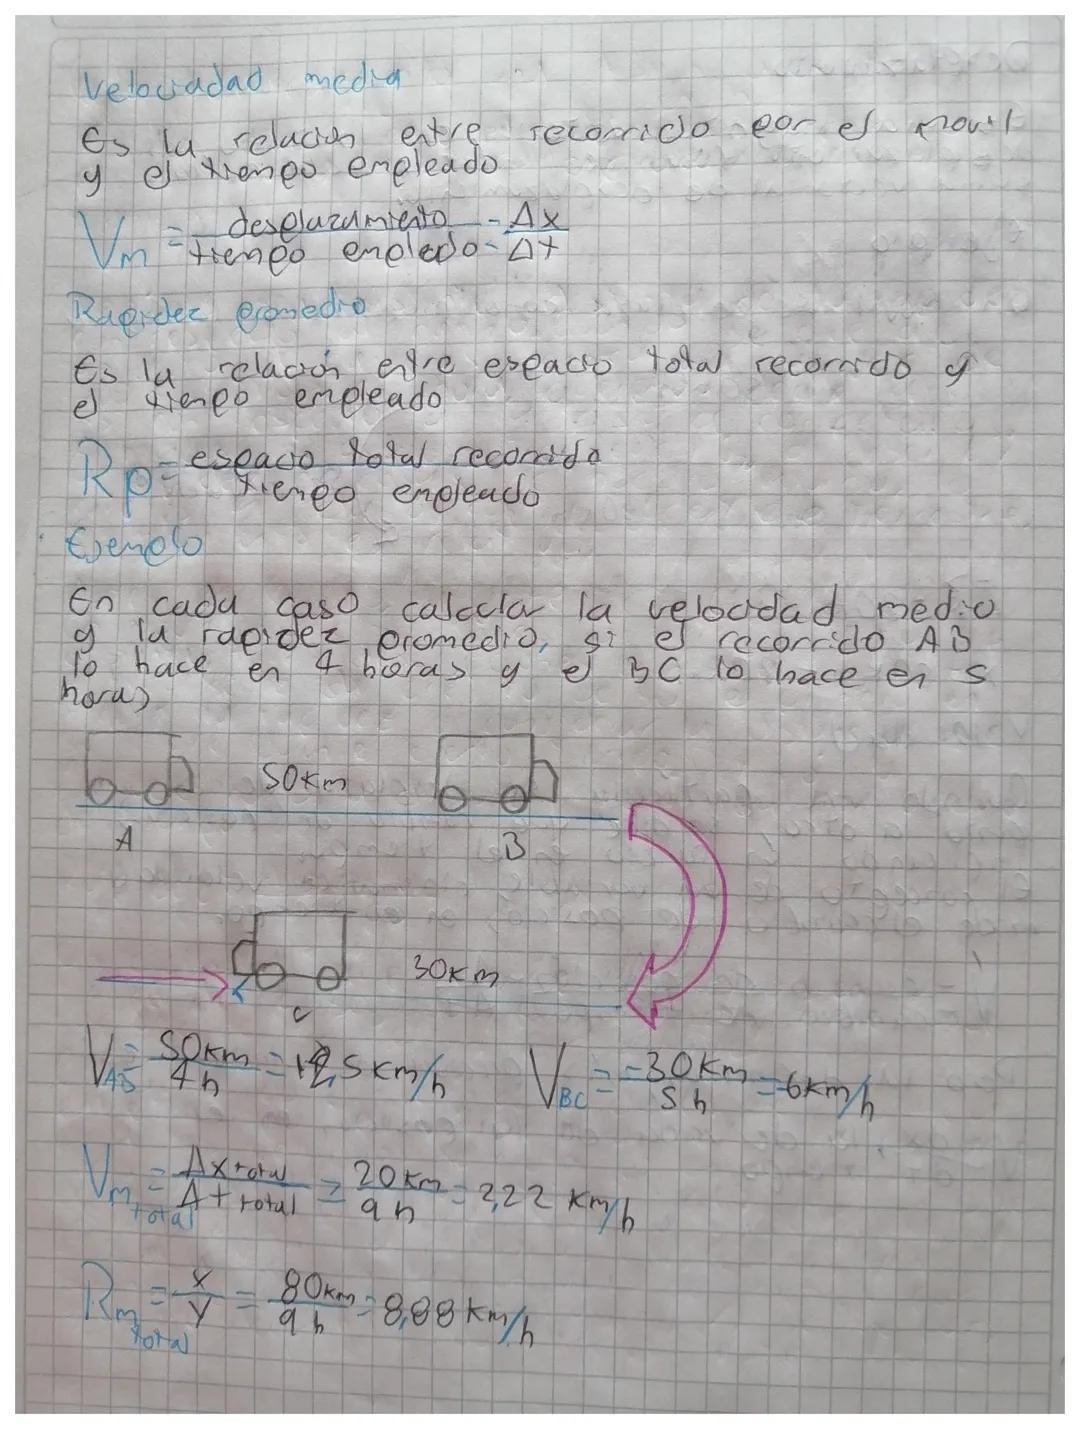 Velociadad media
Es la relación entre recorrido por el movil
y el tiempo empleado
Vm = desplazamiento / tiempo empledo = Δx / Δt
Rapidez promedio
Es la relación entre espacio total recorrido y
el tiempo empleado
Rp = espacio total recorrido / tiempo empleado
Ejemplo
En cada caso calcular la velocidad medio
y la rapidez promedio, si el recorrido AB
lo hace en 4 horas y el BC lo hace en 5
horas
50 km
A B
30 km
C
VAB = 50 km / 4 h = 12,5 km/h VBC = -30 km / 5 h = -6 km/h
Vm total = Δx total / Δt total = 20 km / 9 h = 2,22 km/h
Rm total = x / y = 80 km / 9 h = 8,88 km/h